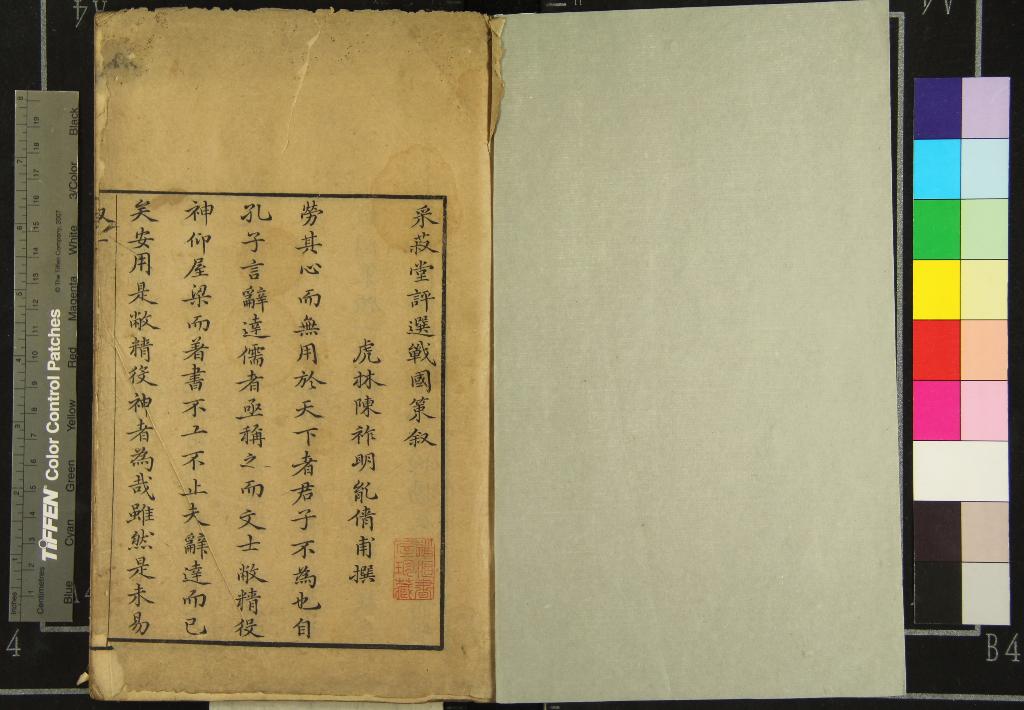 采菽堂評選戰國策叙
虎林陳祚明胤倩甫撰
勞其心而無用於天下者君子不為也自
孔子言辭達儒者亟稱之而文士敝精役
神仰屋梁而著書不工不止夫辭達而已
矣安用是敝精役神者為哉雖然是未易
叙 一
TIFFEN Color Control Patches
© The Tiffen Company, 2007
Inches
Centimetres
Blue Cyan Green Yellow Red Magenta White 3/Color Black
4
B4